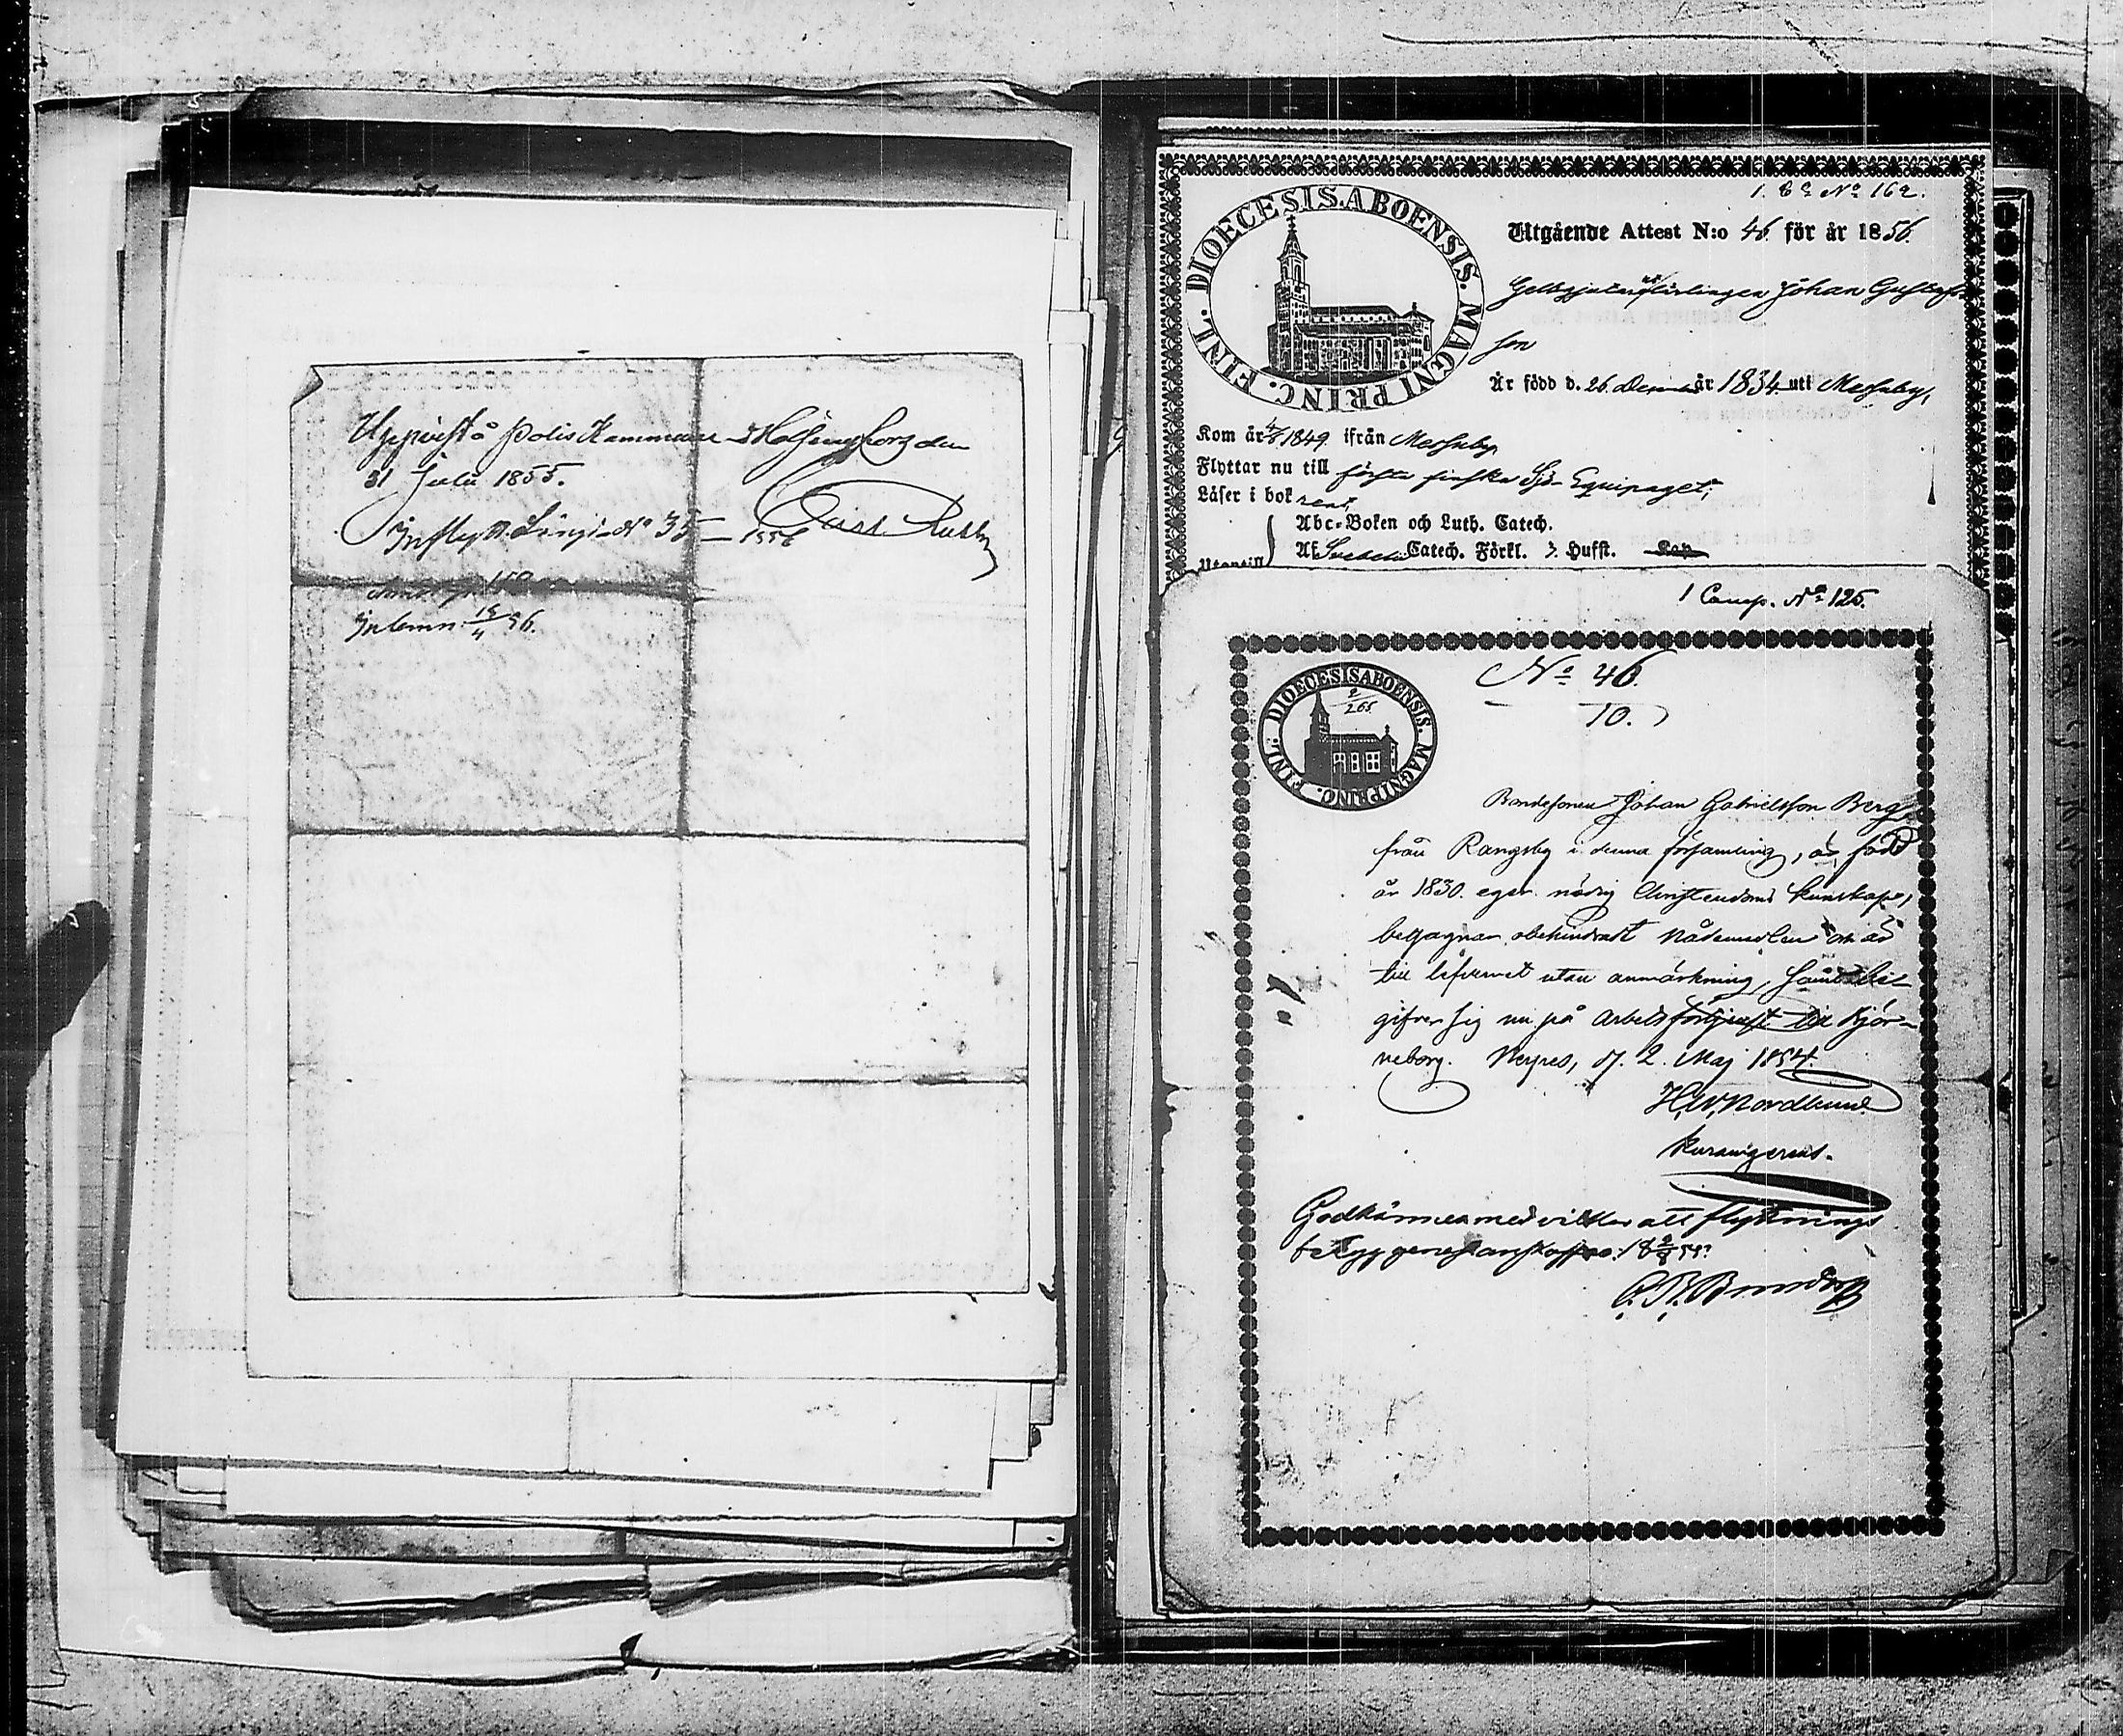 Uppvist å Polis Kammaren i Helsingfors den
31 Julii 1855.
Inflyttn. Läng: No 35 — 1856
Inlemn. 15/4 56.
1. Co No 162.
DIOECESIS.ABOENSIS. MAGNI PRINC. FINL.
Utgående Attest N:o 46 för år 1856.
Johan Gustafs-
son
Är född d. 26 Decemb. år 1834 uti
Kom år 1849 ifrån
Flyttar nu till första finska Sjö-Equipaget;
Läser i bok rent,
Abc-Boken och Luth. Catech.
Af Svebelii Catech. Förkl. Husst. Kap
Utantill
1 Comp. No 125.
No 46.
10.
DIOECESIS ABOENSIS. MAGNI PRINC. FINL.
2/265
Bondesonen Johan Gabrielsson Berg,
från Rangsby i denna församling, är född
år 1830. eger nödig Christendoms kunskap,
begagnar obehindradt Nådemedlen och är
till lefvernet utan anmärkning, samt be-
gifver sig nu på arbetsförtjenst till Björ-
neborg. Nerpes, d. 2. Maj 1854.
H.W.Nordlund
kuramgerens.
Godkännes med vilkor att flyttnings
betyg genast anskaffas: